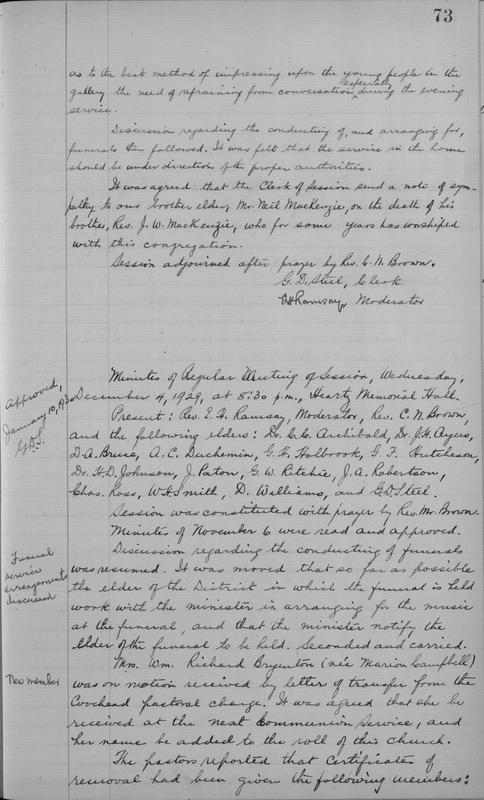 73
as to the best method of impressing upon the young people in the
especially
gallery the need of refraining from conversation during the evening
service.
Discussion regarding the conducting of, and arranging for,
funerals then followed. It was felt that the service in the home
should be under direction of the proper authorities.
It was agreed that the Clerk of Session send a note of sym-
pathy to our brother elder, Mr. Neil MacKenzie, on the death of his
brother, Rev. J. W. MacKenzie, who for some years has worshiped
with this congregation.
Session adjourned after prayer by Rev. C. N. Brown.
G. D. Steel, Clerk
EHRamsay, Moderator
Minutes of Regular Meeting of Session, Wednesday,
Approved,
January 10, 1930
G.D.S.
December 4, 1929, at 8:30 p.m., Heartz Memorial Hall.
Present: Rev. E. H. Ramsay, Moderator, Rev. C. N. Brown,
and the following elders: Dr. C. C. Archibald, Dr. J. H. Ayers,
D. A. Bruce, A. C. Duchemin, G. H. Holbrook, G. F. Hutcheson,
Dr. H. D. Johnson, J. Paton, G. W. Ritchie, J. A. Robertson,
Chas. Ross, W. H. Smith, D. Williams, and G. D. Steel.
Session was constituted with prayer by Rev. Mr. Brown.
Minutes of November 6 were read and approved.
Funeral
service
arrangements
discussed
Discussion regarding the conducting of funerals
was resumed. It was moved that so far as possible
the elder of the District in which the funeral is held
work with the minister in arranging for the music
at the funeral, and that the minister notify the
Elder of the funeral to be held. Seconded and carried.
New member
Mrs. Wm. Richard Bryenton (née Marion Campbell)
was on motion received by letter of transfer from the
Covehead pastoral charge. It was agreed that she be
received at the next Communion Service, and
her name be added to the roll of this church.
The pastors reported that certificates of
removal had been given the following members: